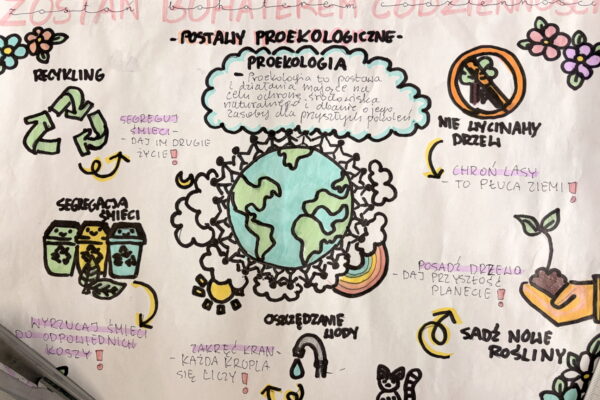 ZOSTAŃ BOHATEREM CODZIENNOŚCI
-POSTAWY PROEKOLOGICZNE-
PROEKOLOGIA
- Proekologia to postawa
i działania mające na
celu ochronę środowiska
naturalnego i dbanie o jego
zasoby dla przyszłych pokoleń.
RECYKLING
SEGREGUJ
ŚMIECI -
- DAJ IM DRUGIE
ŻYCIE!
NIE WYCINAMY
DRZEW
CHROŃ LASY
- TO PŁUCA ZIEMI!
SEGREGACJA
ŚMIECI
WYRZUCAJ ŚMIECI
DO ODPOWIEDNICH
KOSZY!
POSADŹ DRZEWO
- DAJ PRZYSZŁOŚĆ
PLANECIE!
SADŹ NOWE
ROŚLINY
OSZCZĘDZANIE
WODY
ZAKRĘĆ KRAN
- KAŻDA KROPLA
SIĘ LICZY!